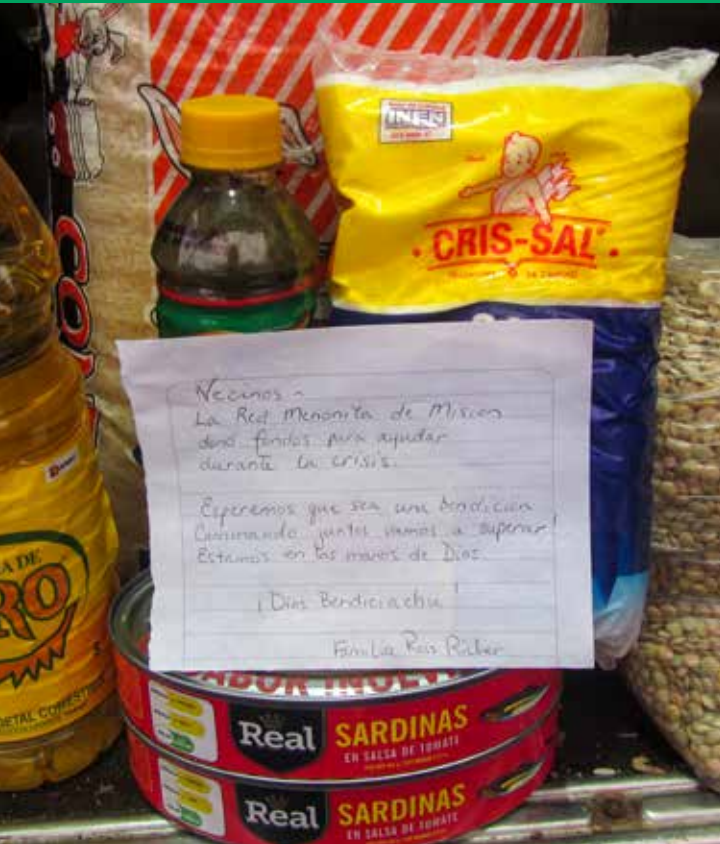 INEN
CRIS-SAL
Vecinos -
La Red Menonita de Mision
dono fondos para ayudar
durante la crisis.
Esperemos que sea una bendicion
Caminando juntos vamos a superar!
Estamos en las manos de Dios.
¡Dios Bendiciachu!
Familia Rois
ORO
Real SARDINAS
EN SALSA DE TOMATE
Real SARDINAS
EN SALSA DE TOMATE